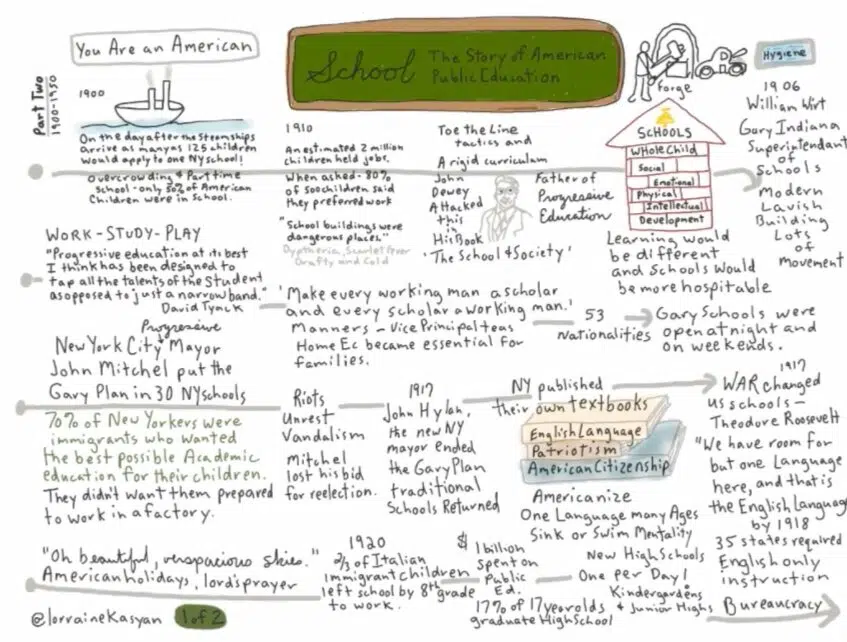 You Are an American
Part Two
1900-1950
1900
On the day after the Steamships
arrive as many as 125 children
would apply to one NY school!
overcrowding & Part time
School - only 50% of American
Children were in school.
School The Story of American
Public Education
1910
An estimated 2 million
children held jobs.
When asked - 80%
of 500 children said
they preferred work
"School buildings were
dangerous places"
Dyptheria, Scarlet Fever
Drafty and Cold
Toe the Line
tactics and
A rigid curriculum
John
Dewey
Attacked
this
in
His Book
'The School & Society'
Father of
Progressive
Education
forge
SCHOOLS
WHole Child
Social
Emotional
Physical
Intellectual
Development
Learning would
be different
and Schools would
be more hospitable
Hygiene
1906
William Wirt
Gary Indiana
Superintendant
of
Schools
Modern
Lavish
Building
Lots
of
Movement
WORK-STUDY-PLAY
"Progressive education at its best
I think has been designed to
tap all the talents of the Student
as opposed to just a narrow band."
David Tyack
'Make every working man a scholar
and every scholar a working man.'
Manners - Vice Principal teas
Home Ec became essential for
families.
53
Nationalities
Gary Schools were
open at night and
on weekends.
Progressive
New York City Mayor
John Mitchel put the
Gary Plan in 30 NY schools
70% of New Yorkers were
immigrants who wanted
the best possible Academic
education for their children.
They didn't want them prepared
to work in a factory.
Riots
Unrest
Vandalism
Mitchel
lost his bid
for reelection.
1917
John Hylan,
the new NY
mayor ended
the Gary Plan
traditional
Schools Returned
NY published
their own textbooks
English Language
Patriotism
American Citizenship
Americanize
One Language many Ages
Sink or Swim Mentality
1917
WAR changed
us schools -
Theodore Roosevelt
"We have room for
but one Language
here, and that is
the English Language
by 1918
35 states required
English only
instruction
"Oh beautiful, verspacious skies."
American holidays, lord's prayer
1920
2/3 of Italian
immigrant children
left school by 8th grade
to work.
$1 billion
spent on
Public
Ed.
17% of 17 year olds
graduate High School
New High Schools
One per Day!
Kindergardens
& Junior Highs
Bureaucracy
@lorraineKasyan 1 of 2